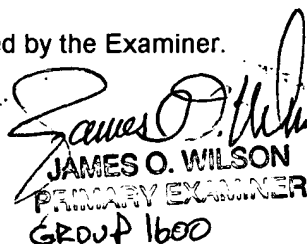 ed by the Examiner.
James O. Wils
JAMES O. WILSON
PRIMARY EXAMINER
GROUP 1600